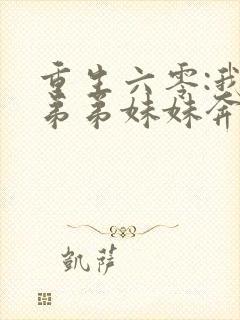 重生六零:我
弟弟妹妹奔
凯萨